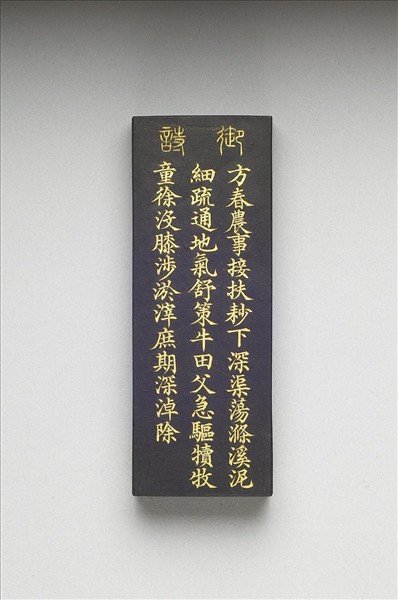 御詩
方春農事接扶耖下深渠蕩滌溪泥
細疏通地氣舒策牛田父急驅犢牧
童徐沒膝涉淤滓庶期深淖除